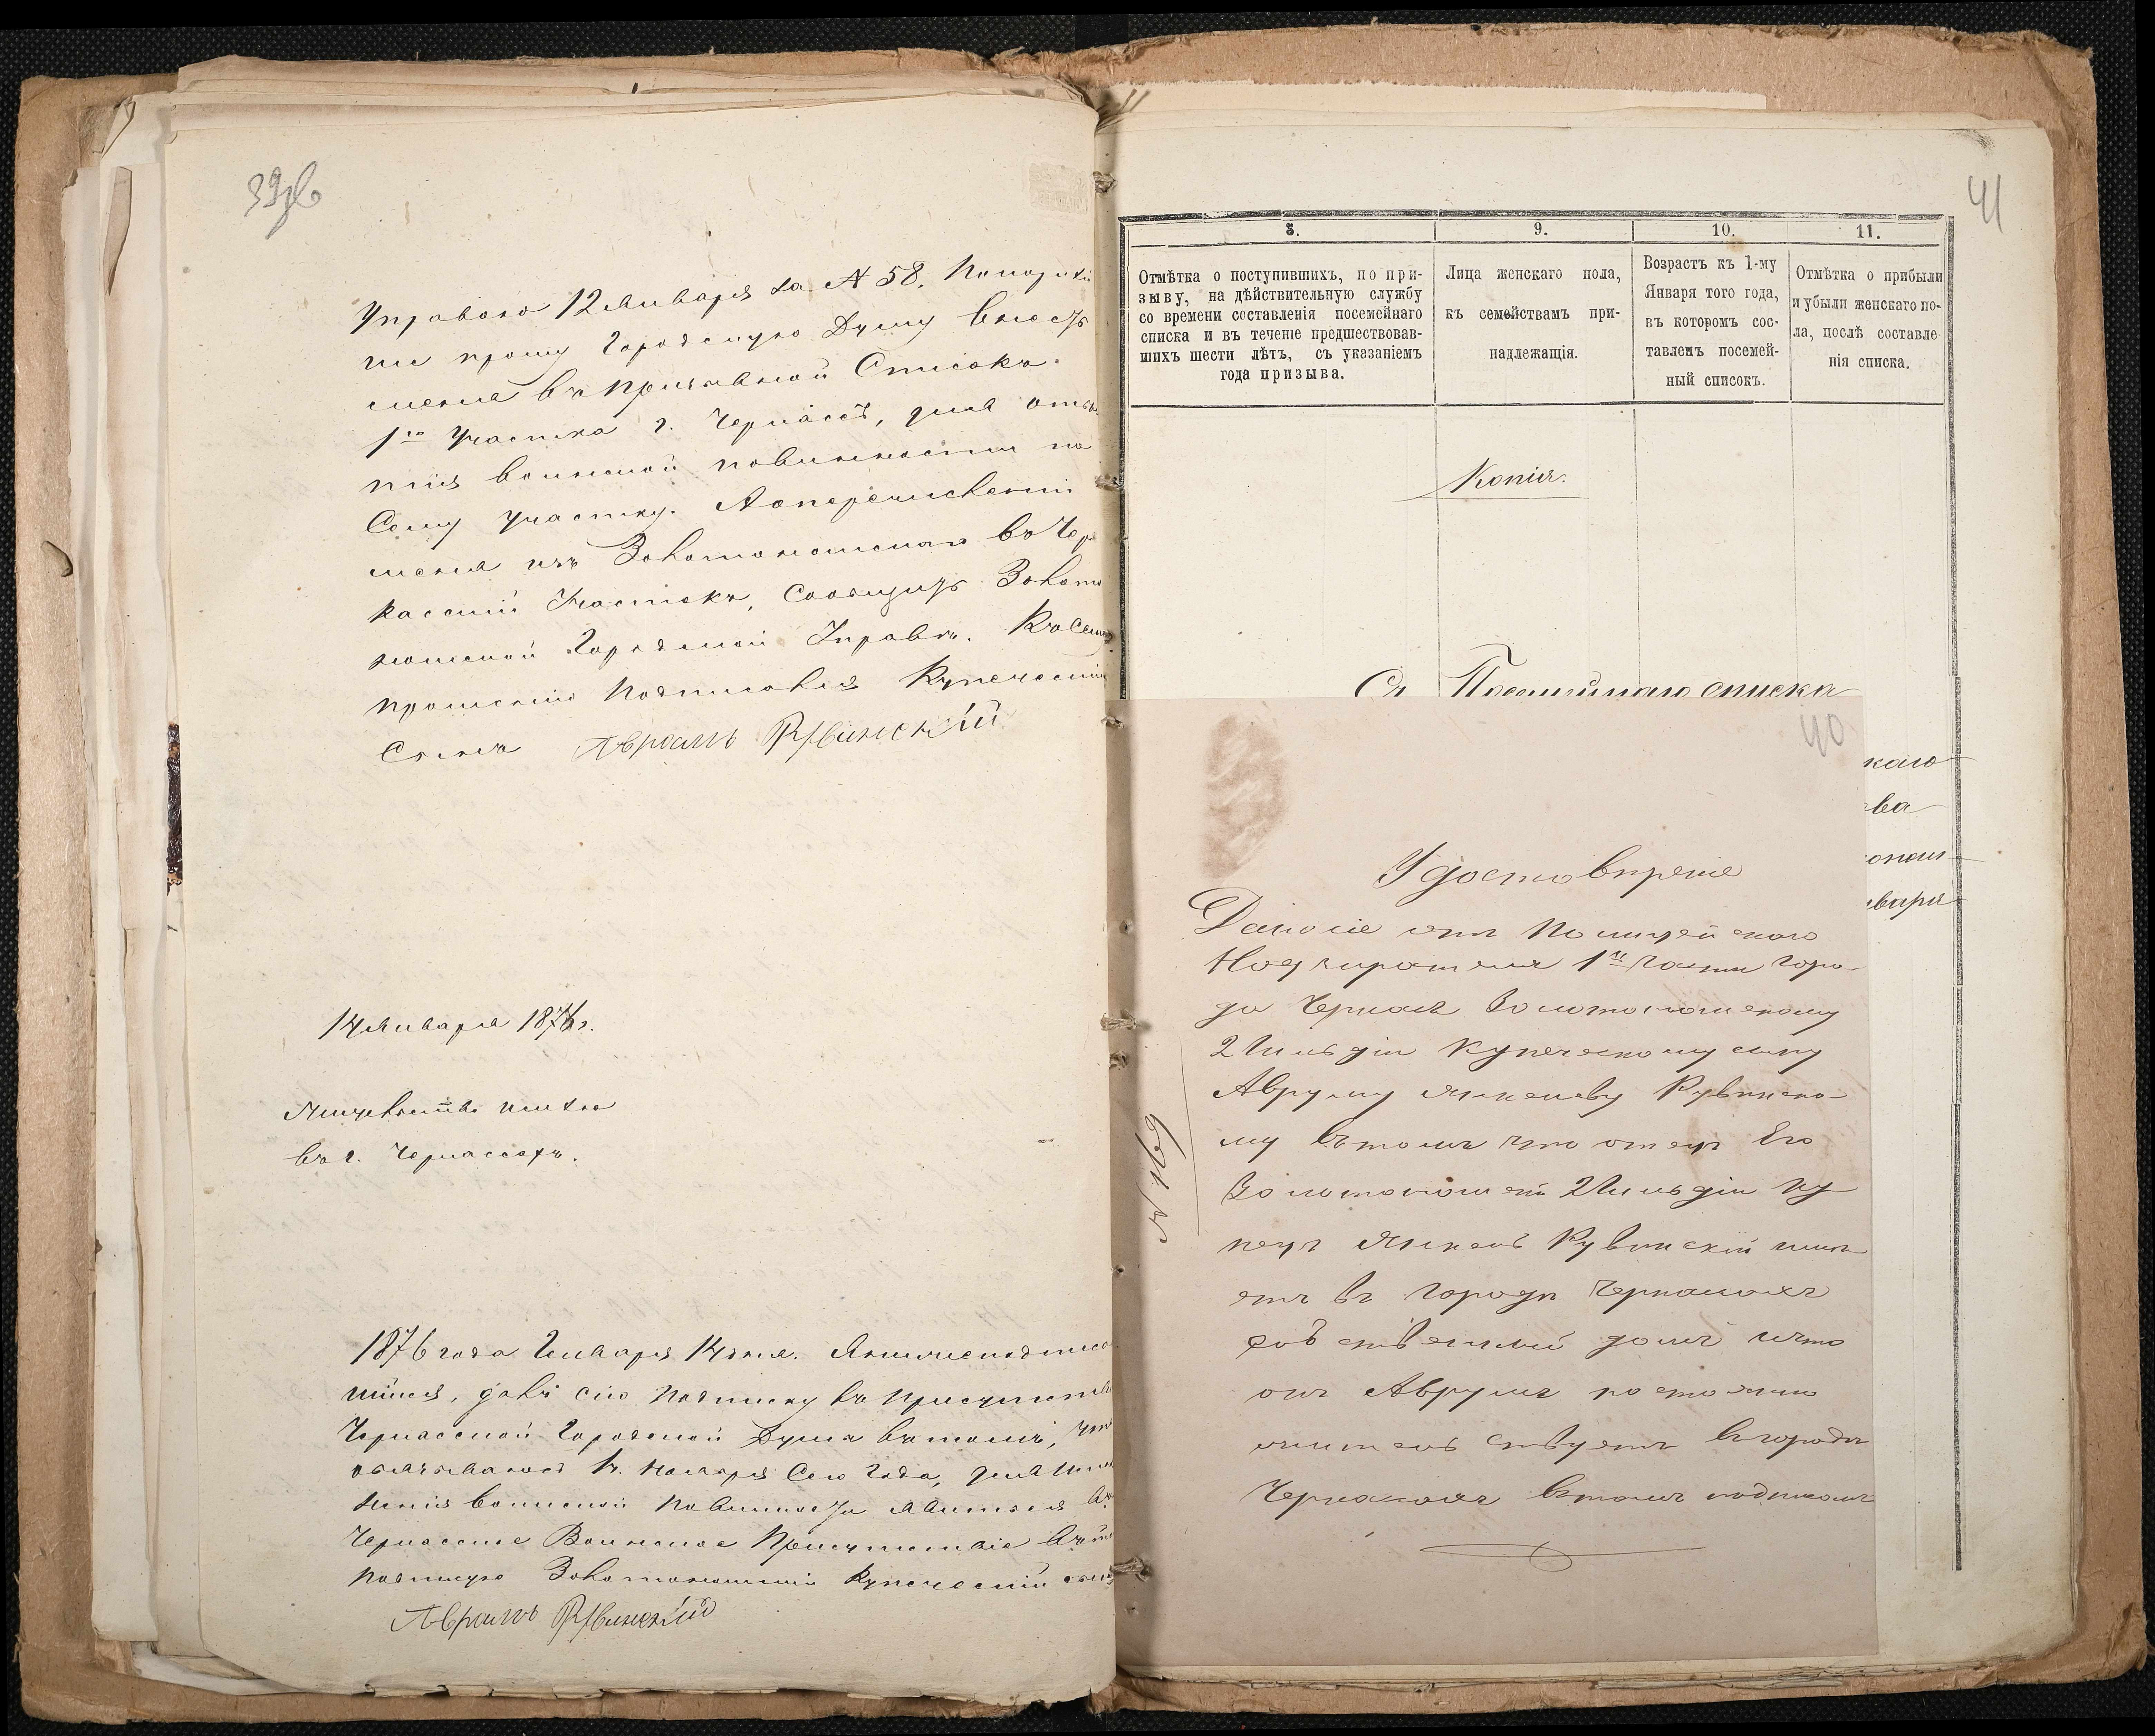 39об
Управою 12 Января за № 58. Покорнѣй
ше прошу Городскую Думу внесть
меня въ призывной Списокъ
1го участка г. Черкассъ, для отбы
тія воинской повинности по
Сему участку. А о перечисленіи
меня изъ Золотоношскаго въ Чер
касскій Участокъ, Сообщить Золото
ношской Городской Управѣ. Къ Сему
прошенію Подписался Купеческій
Сынъ Аврамъ Рувинскій
14 Января 1876 г.
Жительство имѣю
въ г. Черкассахъ.
1876 года Генваря 14 дня. Я нижеподписав
шійся, далъ сію подписку въ присутствіи
Черкасской Городской Думы въ томъ, что
обязываюсь 1. Ноября Сего Года, для
воинской повинности явиться въ
Черкасское Воинское Присутствіе въ
подписую Золотоношскій Купеческій сынъ
Аврамъ Рувинскій
41
8.
9.
10.
11.
Отмѣтка о поступившихъ, по при-
зыву, на дѣйствительную службу
со времени составленія посемейнаго
списка и въ теченіе предшествовав-
шихъ шести лѣтъ, съ указаніемъ
года призыва.
Лица женскаго пола,
къ семействамъ при-
надлежащія.
Возрастъ къ 1-му
Января того года,
въ которомъ сос-
тавленъ посемей-
ный списокъ.
Отмѣтка о прибыли
и убыли женскаго по-
ла, послѣ составле-
нія списка.
Копія.
Съ Посемейнаго списка
каго
ва
варя
40
Удостовѣреніе
Данное отъ Полицейскаго
Надзирателя 1й части горо-
да Черкасъ Золотоношскому
2 Гильдіи Купеческому сыну
Авруму Янкелеву Рувинско-
му въ томъ что отецъ Его
Золотоношскій 2 Гильдіи Ку-
пецъ Янкель Рувинскій имѣ-
етъ въ городѣ Черкасахъ
собственный домъ и что
онъ Аврумъ постоянно
жительствуетъ въ городѣ
Черкасахъ въ томъ подписомъ
№ 169